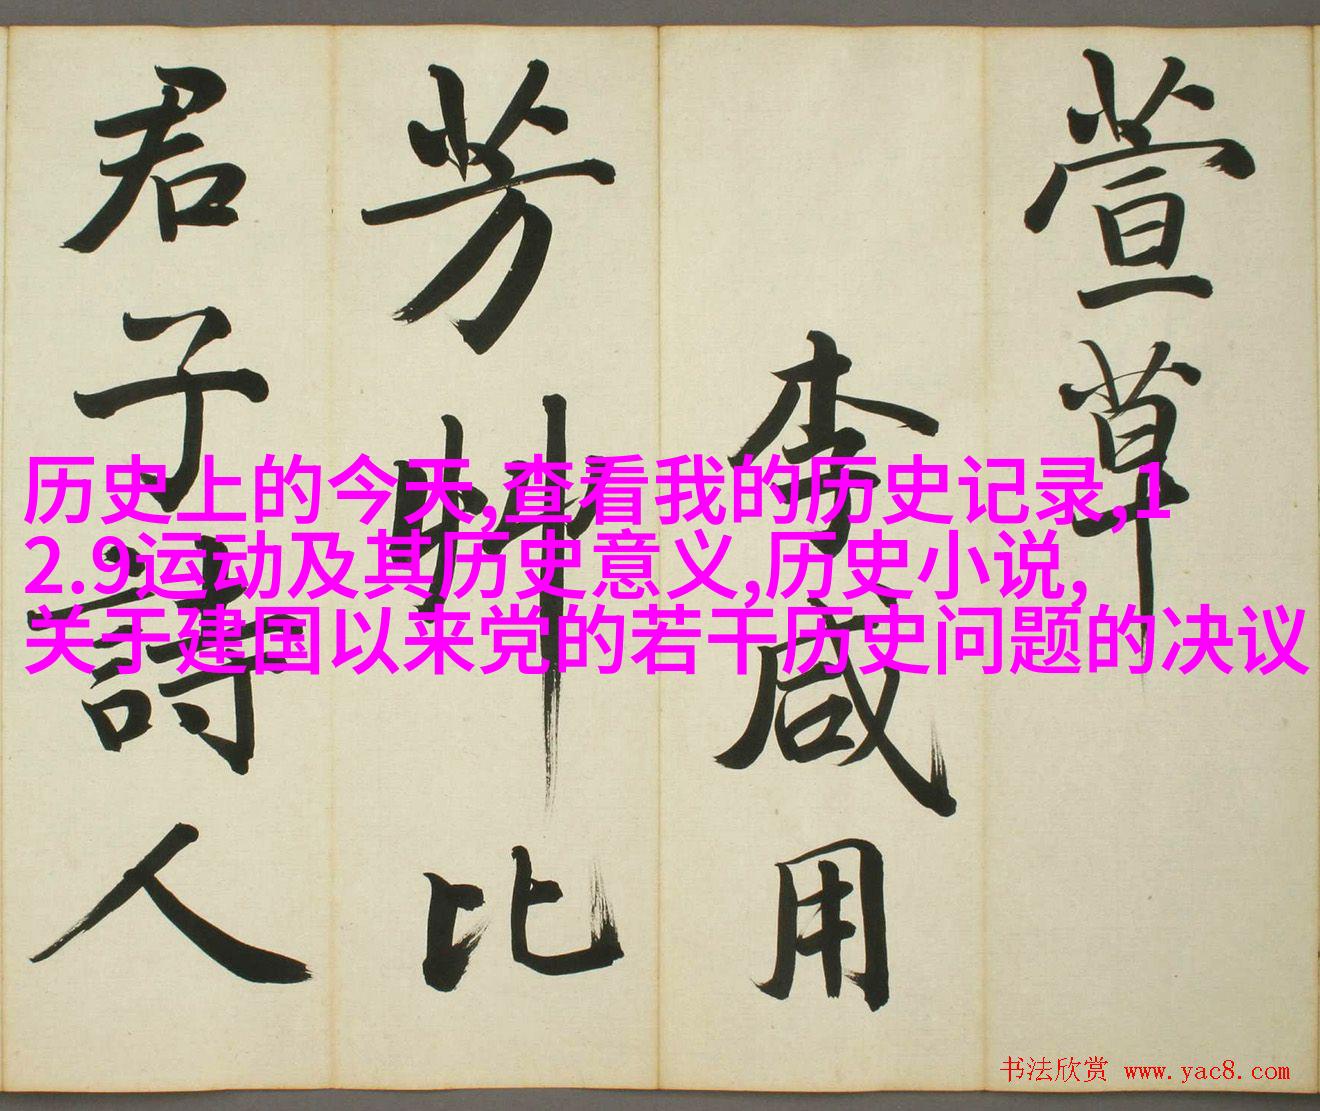 萱草
李咸用
芳艸比
君子詩人
历史上的今天,查看我的历史记录,1
2.9运动及其历史意义,历史小说,
关于建国以来党的若干历史问题的决议
书法欣赏 www.yac8.com